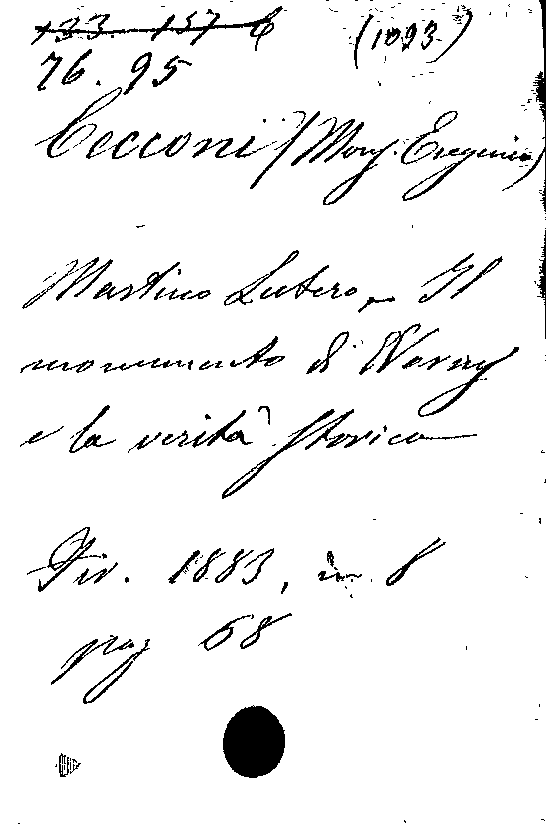 133 157 6 (1093)
76. 95
Cecconi (Mons. Eugenio)
Martino Lutero, Il
monumento di Worms
e la verità storica
Fir. 1883, in 8
pag 68